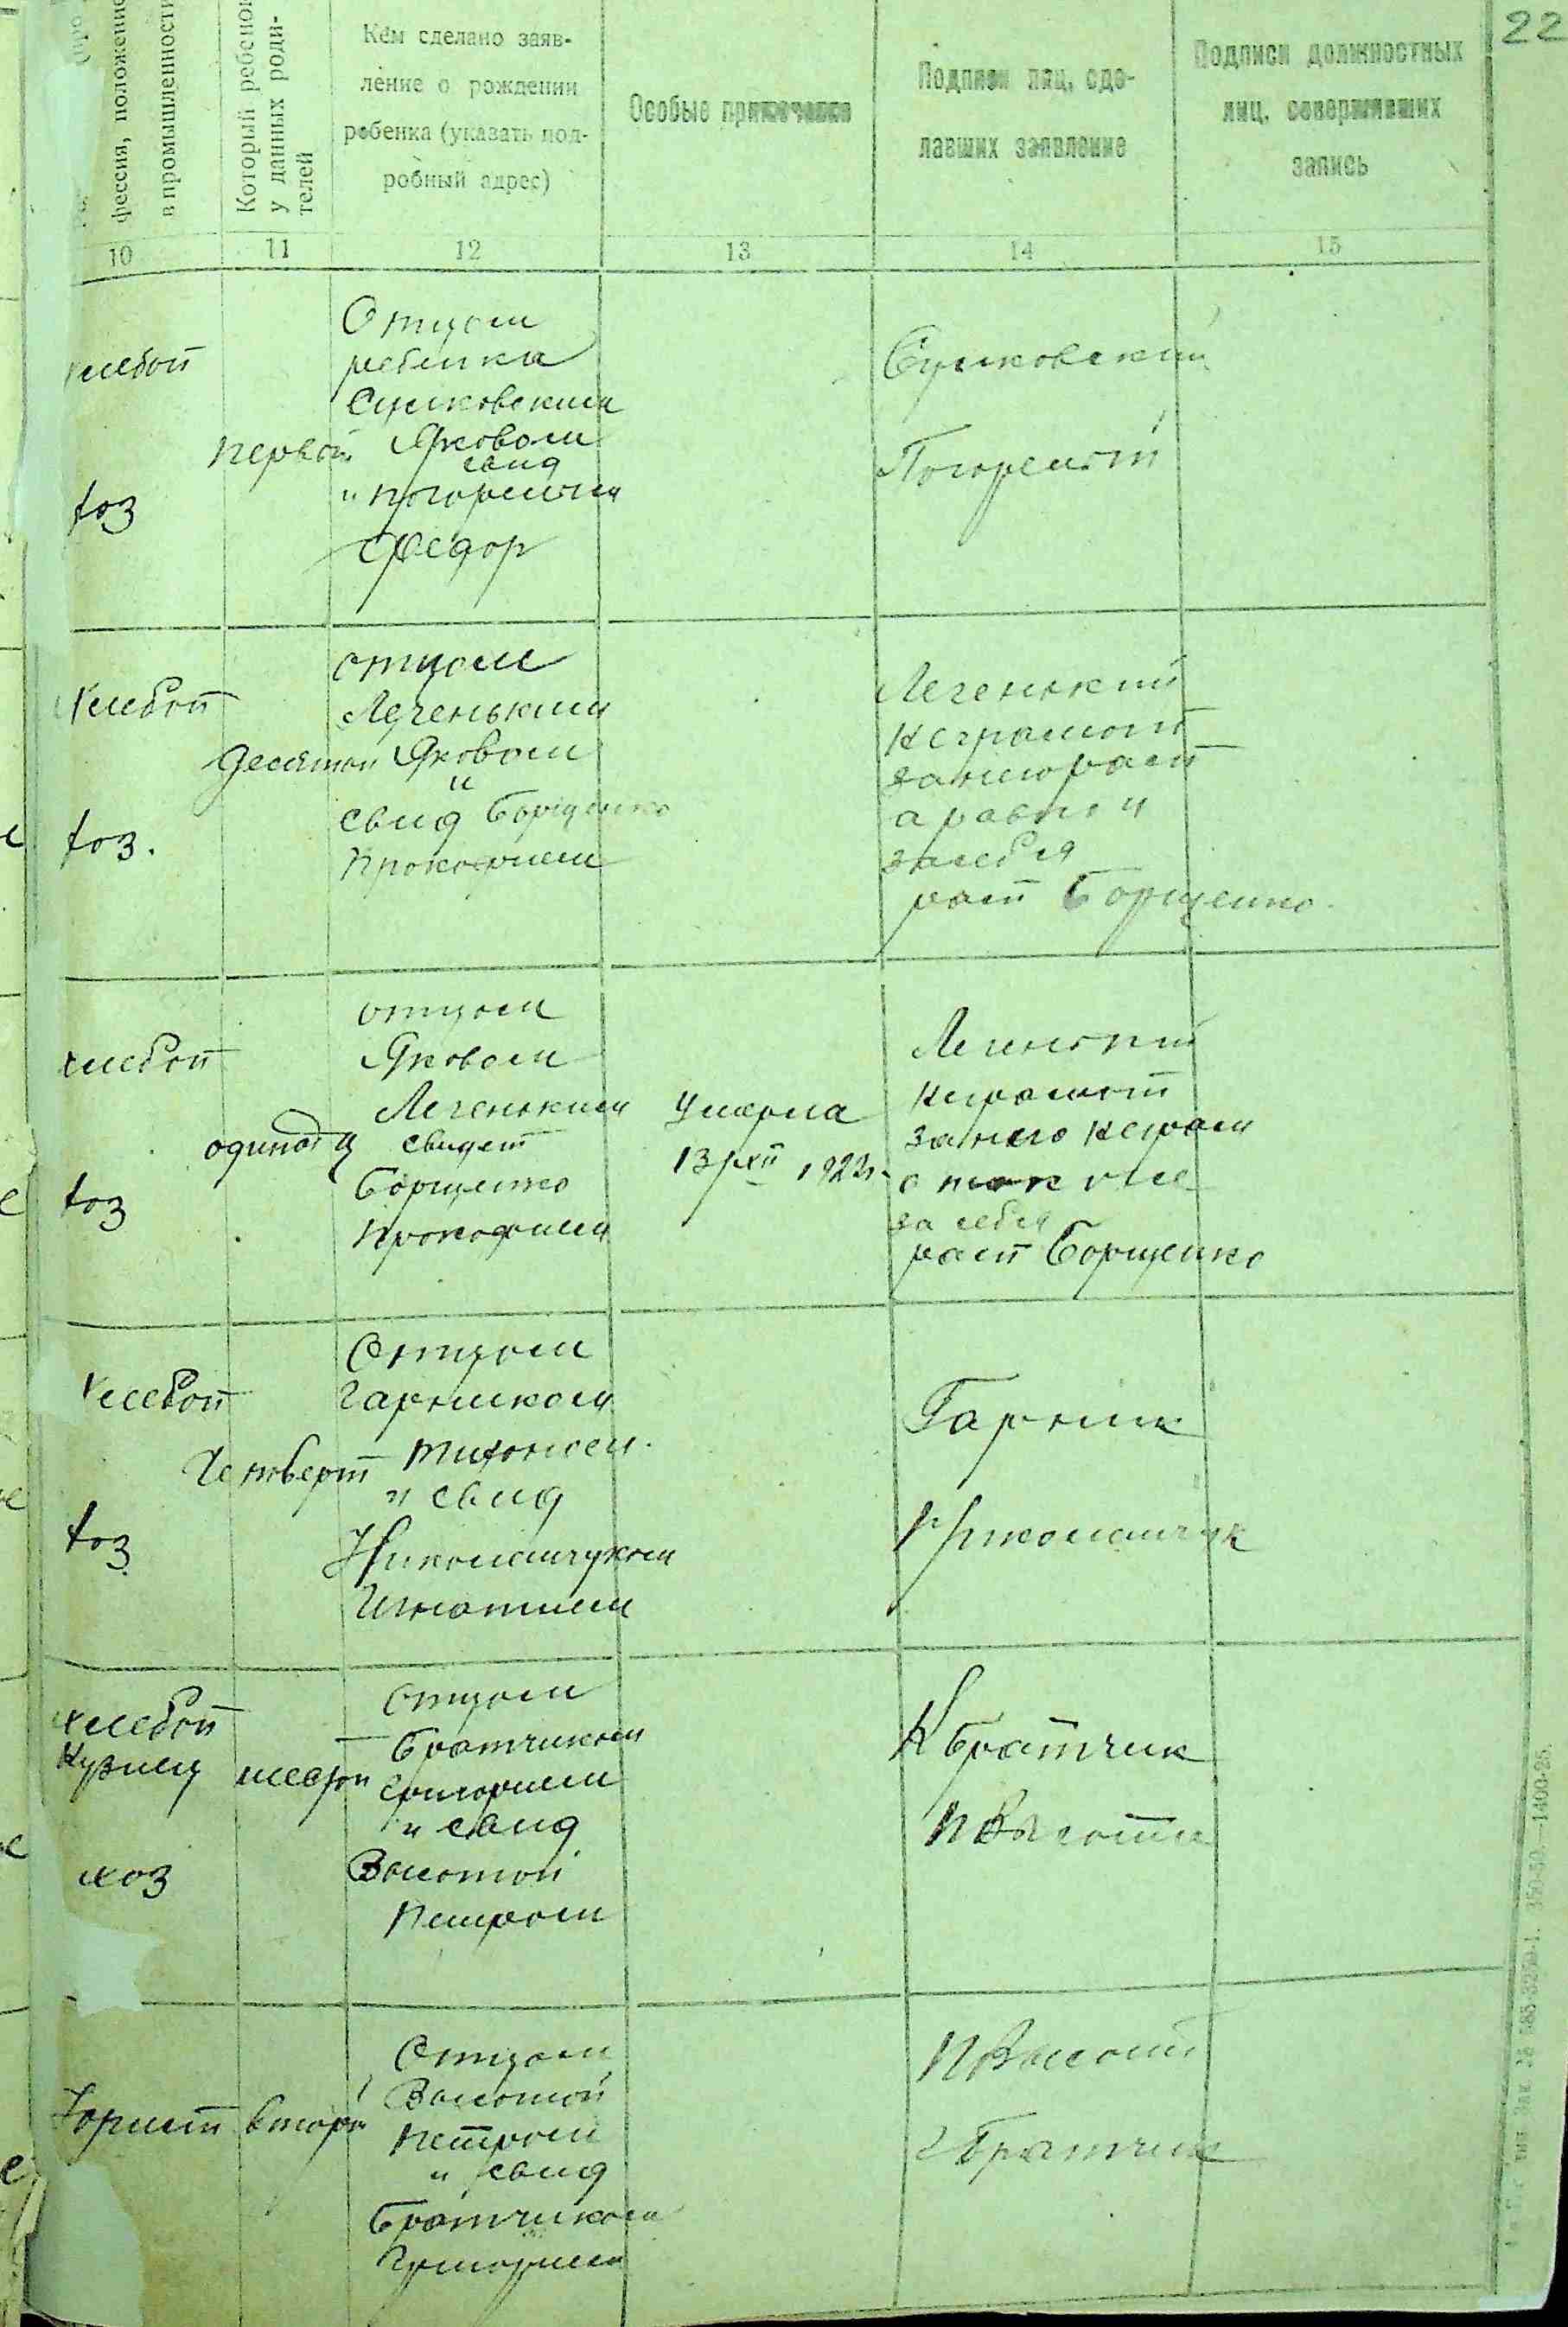 22
фессия, положение
в промышленности
Который ребенок
у данных роди-
телей
Кем сделано заяв-
ление о рождении
ребенка (указать под-
робный адрес)
Особые примечания
Подписи лиц, сде-
лавших заявление
Подписи должностных
лиц, совершивших
запись
10 11 12 13 14 15
хлебоп
хоз
первой
Отцом
ребенка
Сушковским
Яковом
свид
и Погорелым
Федор
Сушковский
Погорелый
хлебоп
хоз.
десятой
отцом
Легеньким
Яковом
и
свид Борщенко
Прокофием
Легенький
неграмот
за него расп
а равно и
за себя
расп Борщенко.
хлебоп
хоз
одинадц
отцом
Яковом
Легеньким
свидет
Борщенко
Прокофием
Умерла
13/XII 192
неграмот
за него
за себя
расп Борщенко
хлебоп
хоз
Четверт
Отцом
Гарником
Тихоном.
и свид
Николайчуком
Игнатием
Гарник
Николайчук
хлебоп
Кузнец
хоз
шестой
отцом
Братчиком
Григорием
и свид
Высотой
Петром
Братчик
П Высота
второй
Отцом
Высотой
Петром
и свид
Братчиком
Григорием
П Высота
Г Братчик